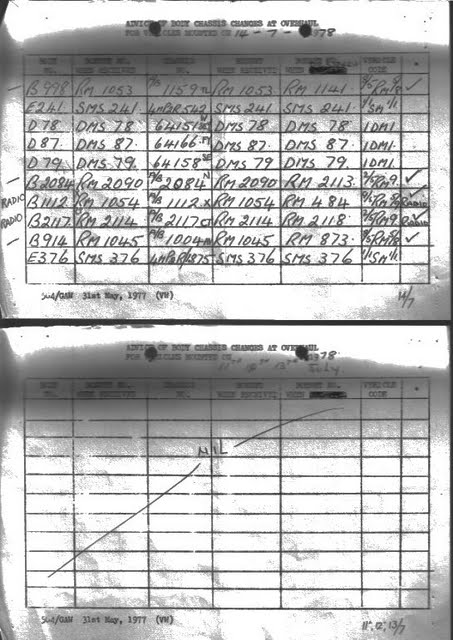 ADVICE OF BODY CHASSIS CHANGES AT OVERHAUL
FOR VEHICLES MOUNTED ON 14 - 7 - 1978
BODY NO. BONNET NO. WHEN RECEIVED CHASSIS NO. BONNET WHEN RECEIVED BONNET NO. WHEN VEHICLE CODE
B998 RM 1053 P/B 1159 RM 1053 RM 1141. ✓
E241. SMS 241. SMS 241 SMS 241.
D78. DMS 78 64151 DMS 78 DMS 78. 1DM1.
D87. DMS 87. 64166 DMS 87. DMS 87. 1DM1.
D79. DMS 79. 64158 DMS 79 DMS 79. 1DM1.
B2084 RM 2090 P/B 2084 N RM 2090 RM 2113. ✓
RADIO B1112 RM 1054 P/B 1112 X RM 1054 RM 484 RADIO ✓
RADIO B2117 RM 2114 P/B 2117 RM 2114 RM 2118. RADIO ✓
B914 RM 1045 P/B 1004 RM 1045 RM 873. ✓
E376 SMS 376 SMS 376 SMS 376
504/GAW 31st May, 1977 (VW)
14/7
ADVICE OF BODY CHASSIS CHANGES AT OVERHAUL
FOR VEHICLES MOUNTED ON 1978
11TH 12TH 13TH July
BODY NO. BONNET NO. WHEN RECEIVED CHASSIS NO. BONNET WHEN RECEIVED BONNET NO. WHEN VEHICLE CODE
NIL
504/GAW 31st May, 1977 (VW)
11, 12, 13/7